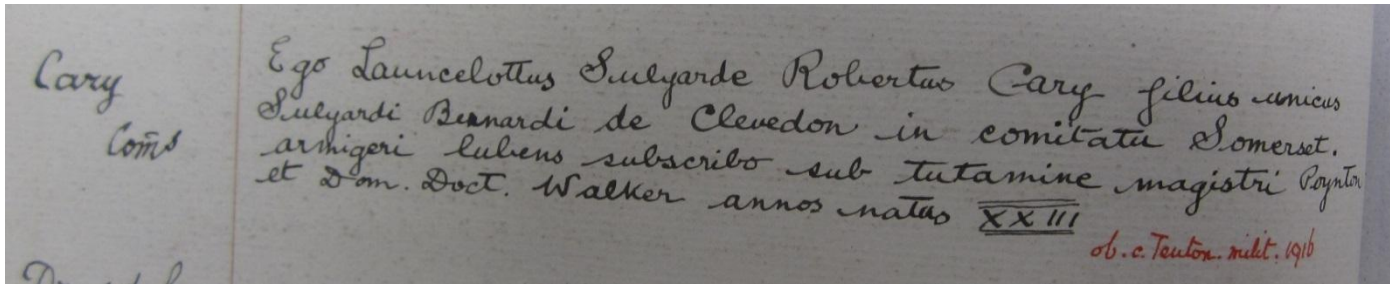 Cary
Com̃s
Ego Launcelottus Sulyarde Robertus Cary filius unicus
Sulyardi Bernardi de Clevedon in comitatu Somerset.
armigeri lubens subscribo sub tutamine magistri Poynton
et Dom. Doct. Walker annos natus XXIII
ob. c. Teuton. milit. 1916